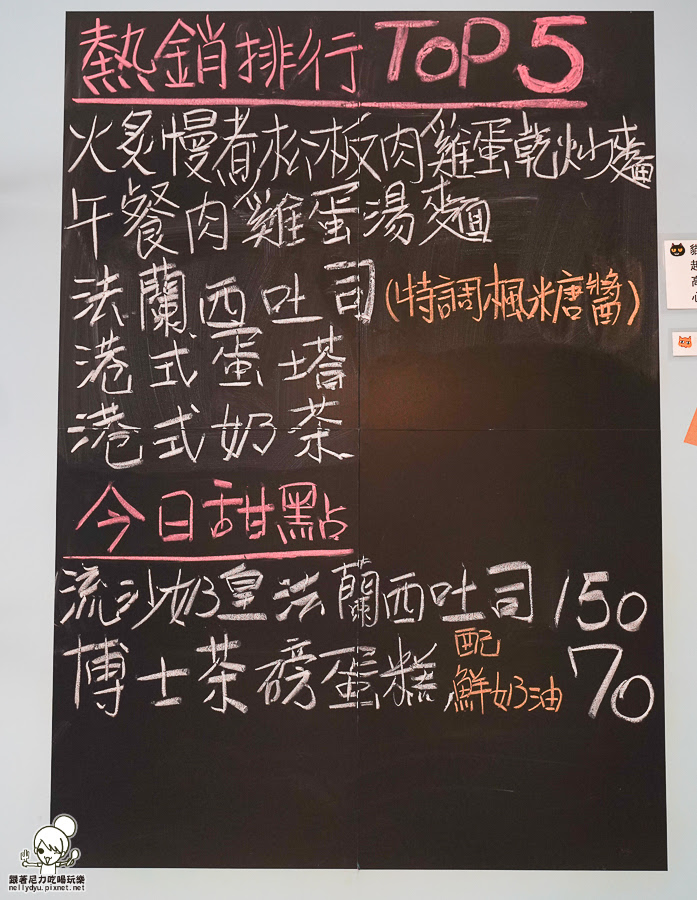 熱銷排行 TOP 5
火炙慢煮松板肉雞蛋乾炒麵
午餐肉雞蛋湯麵
法蘭西吐司(特調楓糖醬)
港式蛋塔
港式奶茶
今日甜點
流沙奶皇法蘭西吐司 150
博士茶磅蛋糕 配鮮奶油 70
跟著尼力吃喝玩樂
nellydyu.pixnet.net